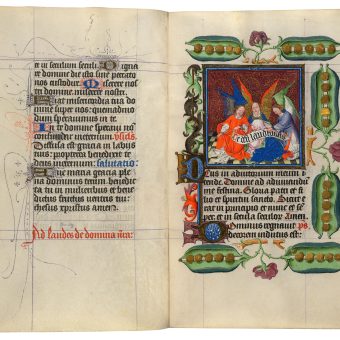 te in seculum seculi. Digna
re domine die isto sine peccato
nos custodire. Miserere nos
tri domine: miserere nostri.
Fiat misericordia tua do
mine super nos: quemadmo
dum speravimus in te.
In te domine speravi non
confundar in eternum.
Diffusa est gracia in labiis
tuis: propterea benedixit te
deus in eternum: salutatio:
Ave maria gracia ple
na dominus tecum benedic
ta tu in mulieribus et bene
dictus fructus ventris tui:
ihesus xpristus amen:
Ad laudes de domina nra:
Te deum laudamus
Deus in adiutorium meum in
tende. Domine ad adiuvandu
me festina. Gloria patri et fi
lio et spiritui sancto. Sicut
erat in principio et nunc et se
per: et in secula seculorum Amen.
Dominus regnavit ps.
decorem indutus est: